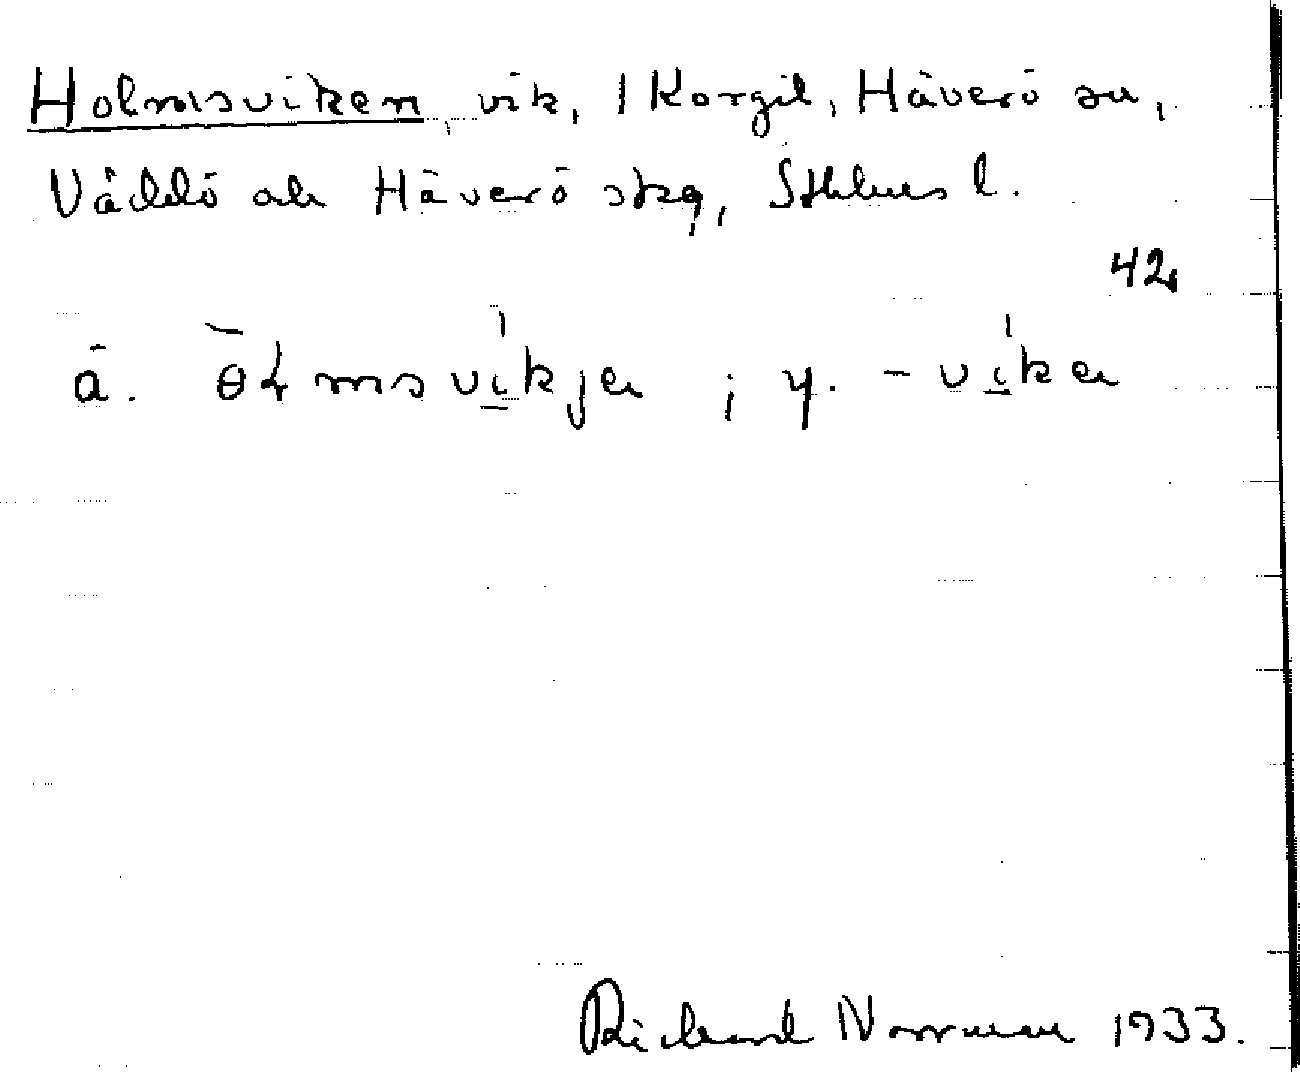 Holmsviken, vik, 1 Korgil, Häverö sn,
Väddö ock Häverö skg, Sthlms l.
42
ä. ɵłmsvikjen ; y. -viken
Richard Norrman 1933.